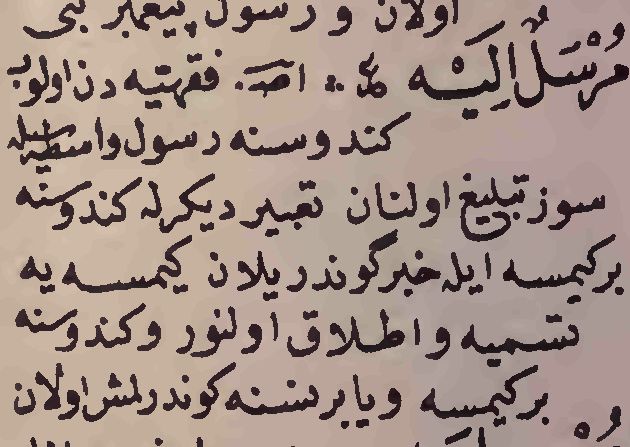 اولان و رسول پیغمبر نبی
مُرْسَلٌ اِلَيْه اصـ فقهيه دن اولوب
كندوسنه رسول واسطه سيله
سوز تبليغ اولنان تعبير ديكرله كندوسنه
بر كيمسه ايله خبر كوندريلان كيمسه يه
تسميه و اطلاق اولنور و كندوسنه
بر كيمسه ويا بر نسنه كوندرلمش اولان